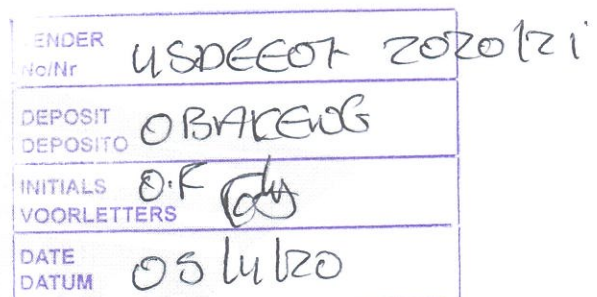 ENDER
No/Nr USDEE07 2020/21
DEPOSIT
DEPOSITO OBAKENG
INITIALS O.F
VOORLETTERS
DATE
DATUM 05/11/20